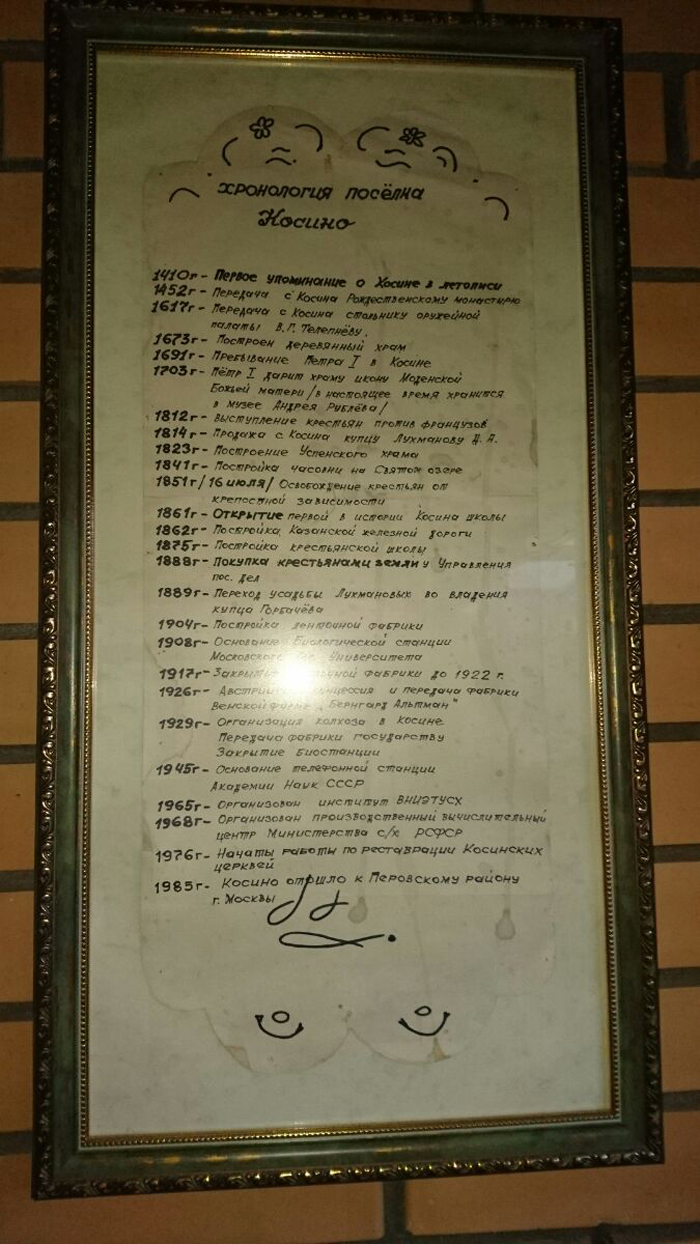 хронология посёлка
Косино
1410г - Первое упоминание о Косине в летописи
1452г - Передача с Косина Рождественскому монастырю
1617г - Передача с Косина стольнику оружейной
палаты В.Г. Телепнёву.
1673г - Построен деревянный храм
1691г - Пребывание Петра I в Косине
1703г - Пётр I дарит храму икону Моденской
Божьей матери /в настоящее время хранится
в музее Андрея Рублёва/
1812г - Выступление крестьян против французов
1814г - Продажа с. Косина купцу Лухманову Д. А.
1823г - Построение Успенского храма
1841г - Постройка часовни на Святом озере
1851г /16 июля/ Освобождение крестьян от
крепостной зависимости
1861г - Открытие первой в истории Косина школы
1862г - Постройка Казанской железной дороги
1875г - Постройка крестьянской школы
1888г - Покупка крестьянами земли у Управления
пос. дел
1889г - Переход усадьбы Лухмановых во владения
купца Горбачёва
1904г - Постройка ленточной фабрики
1908г - Основание Биологической станции
Московского Университета
1917г - фабрики до 1922 г.
1926г - и передача фабрики
Венской „Бернгард Альтман"
1929г - Организация колхоза в Косине
Передача фабрики государству
Закрытие биостанции
1945г - Основание телефонной станции
Академии Наук СССР
1965г - Организован институт ВНИЭТУСХ
1968г - Организован производственный вычислительный
центр Министерства с/х РСФСР
1976г - Начаты работы по реставрации Косинских
церквей
1985г - Косино отошло к Перовскому району
г. Москвы